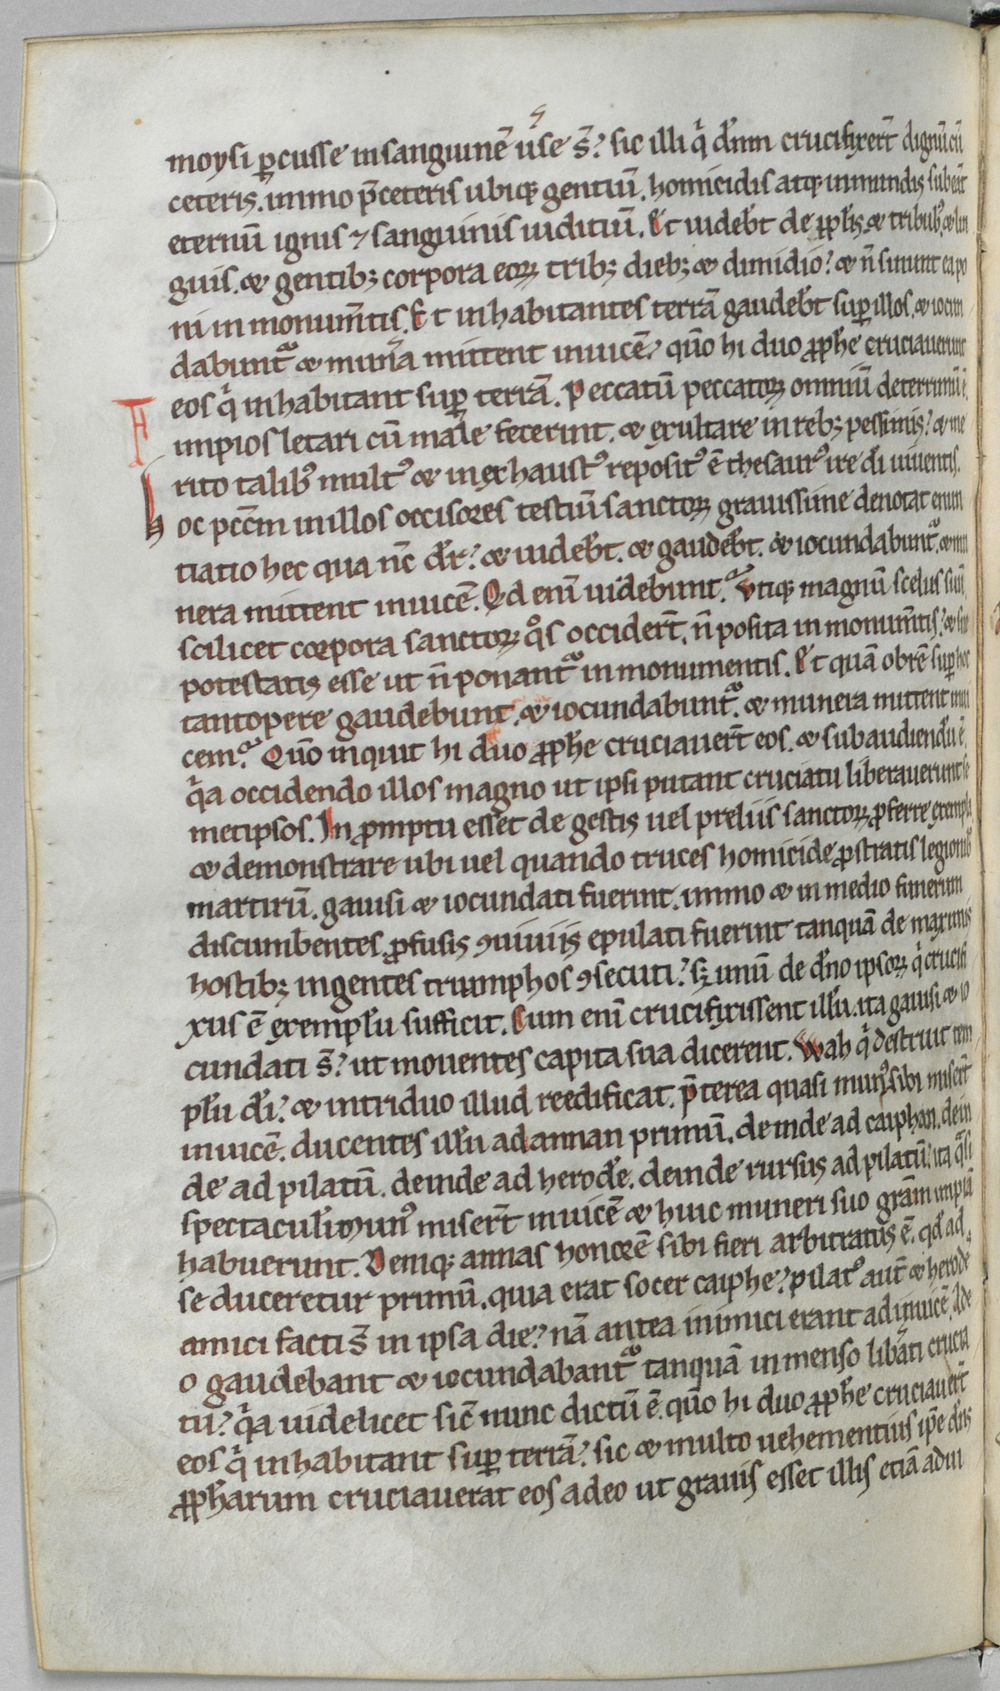 moysi ꝑcusse in sanguinē ūse s̄. sic illi q̇ dn̄m crucifixer̄t dignū cū
ceteris. immo p̄ceteris ubiq; gentiū. homicidis atq; inmundis subeāt
eternū ignis ⁊ sanguinis iuditiū. Et uideb̄t de ppl̄is. & tribub;. & lin
guis. & gentib; corpora eoꝝ trib; dieb; & dimidio. & n̄ sinunt ea po
ni in monum̄tis. Et inhabitantes terrā gaudeb̄t suꝑ illos. & iocun
dabunt᷑ & mun̄a mittent inuicē. qm̄o hi duo ꝓph̄e cruciauerunt
eos q̇ inhabitant suꝑ terrā. Peccatū peccatoꝝ omniū deterrimū ē.
impios letari cū male fecerint. & exultare in reb; pessimis. & me
rito talib; mult᷒ & inexhaust᷒ reposit᷒ ē thesaur᷒ ire dī uiuentis.
hoc pccm̄ in illos occisores testiū sanctoꝝ grauissime denotat enun
tiatio hec qua nc̄ dr̄. & uideb̄t. & gaudeb̄t. & iocundabunt᷑. & mu
nera mittent inuicē. Qd enī uidebunt. Vtiq; magnū scelus suū
scilicet corpora sanctoꝝ q̊s occider̄t. n̄ posita in monum̄tis. & sue
potestatis esse ut n̄ ponant᷑ in monumentis. Et quā ob rē suꝑ hoc
tantopere gaudebunt. & iocundabunt᷑. & munera mittent inui
cem. Qm̄o inquit hi duo ꝓph̄e cruciauer̄t eos. & subaudiendū ē
q̇a occidendo illos magno ut ipsi putant cruciatu liberauerunt se
metipsos. In ꝓmptu esset de gestis uel preliis sanctoꝝ ꝓferre exempla
& demonstrare ubi uel quando truces homicide ꝓstratis legionib;
martirū. gauisi & iocundati fuerint. immo & in medio funerum
discumbentes. ꝓfusis ꝯuiuiis epulati fuerint tanquā de maximis
hostib; ingentes triumphos ꝯsecuti. sꝫ unū de dn̄o ipsoꝝ q̇ crucifi
xus ē exemplū sufficit. Cum enī crucifixissent illū. ita gauisi & io
cundati s̄. ut mouentes capita sua dicerent. Wah q̇ destruit tem
plū dī. & in triduo illud reedificat. p̄terea quasi mun᷒ sibi miser̄t
inuicē. ducentes illū ad annan primū. deinde ad caiphan. dein
de ad pilatū. deinde ad herodē. deinde rursus ad pilatū. ita q̄si
spectaculi mun᷒ miser̄t inuicē & huic muneri suo grām impiā
habuerunt. Deniq; annas honorē sibi fieri arbitratus ē. qd̄ ad
se duceretur primū. quia erat socer caiphe. pilat᷒ aut̄ & herode
amici facti s̄ in ipsa die. nā antea inimici erant ad inuicē. Ade
o gaudebant & iocundabant᷑ tanquā inmenso lib̄ati crucia
tu. q̇a uidelicet sic̄ nunc dictū ē. qm̄o hi duo ꝓph̄e cruciauer̄t
eos q̇ inhabitant suꝑ terrā. sic & multo uehementius ip̄e dn̄s
ꝓpharum cruciauerat eos adeo ut grauis esset illis etiā ad ui